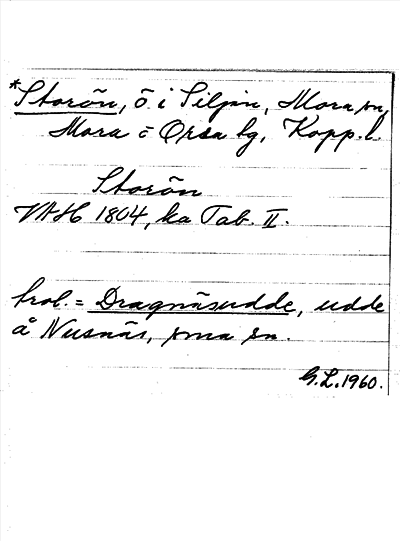 *Storön, ö i Siljan, Mora sn,
Mora o Orsa tg, Kopp. l.
Storön
VAH 1804, ka Tab. II.
trol. = Dragnäsudde, udde
å Nusnäs, sma sn.
G.L. 1960.